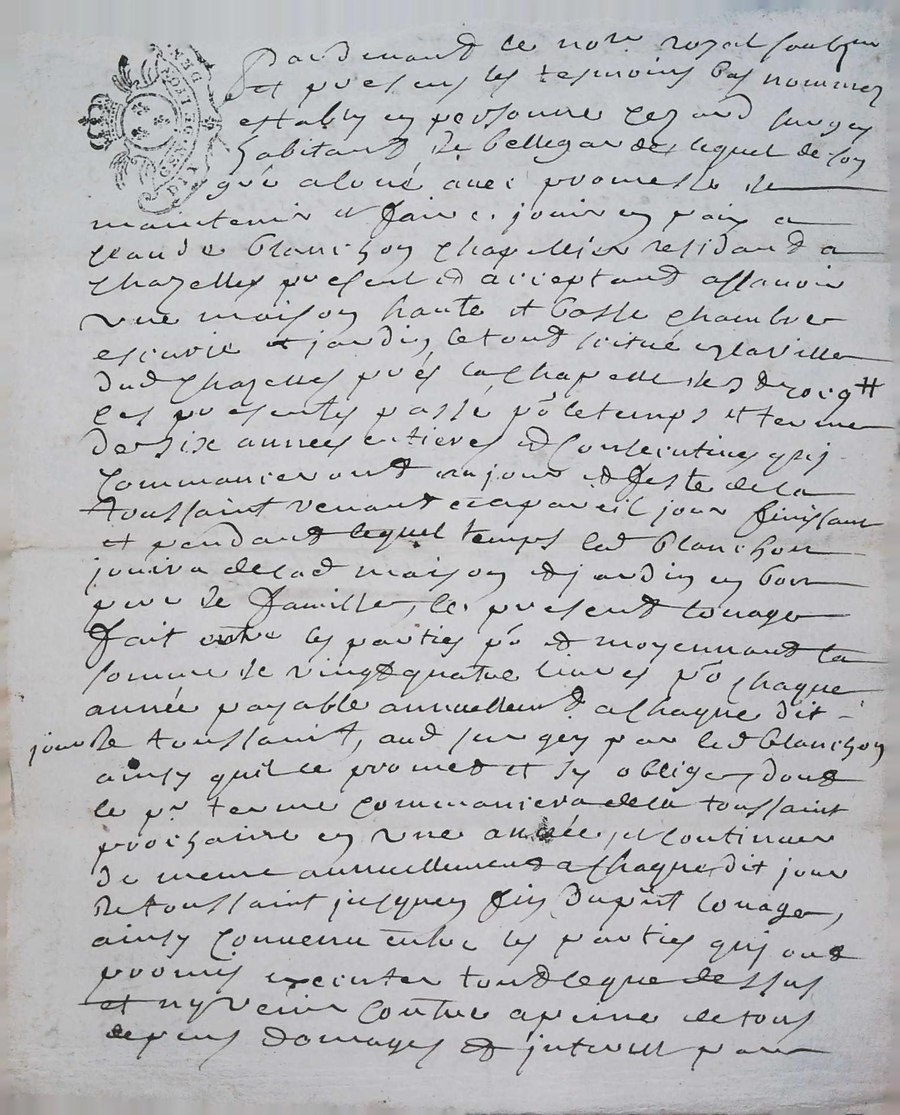 GEN. DE LION
Pardevant le no.re royal soubz.né
et presens les tesmoins bas nommez
estably en personne
habitant de bellegarde lequel de son
gré a loué avec promesse de
maintenir et faire jouir en paix a
claude blanchon chapellier residand a
chazelles present et acceptand assavoir
une maison haute et basse chambre
escurie et jardin le tout scitué en la ville
dud chazelles prés la chapelle de
ces presentes passé pr le temps et terme
de six années entieres et consecutives quj
commanceront au jour et feste de la
toussaint venant et a pareil jour finissant
et pendant lequel temps led blanchon
jouira de lad maison et jardin en bon
pere de famille, le present louage
fait entre les parties pr et moyennand la
somme de vingt quatre livres pr chaque
année payable annuellemt a chaque dit
jour de toussaint, aud par led blanchon
ainsy quil le promet et sy oblige, dont
le pr terme commancera de la toussaint
prochaine en une année, et continuer
de meme annuellement a chaque dit jour
de toussaint jusques fin du pnt louage,
ainsy convenu entre les parties quj ont
promis executer tout ce que dessus
et ny venir contre a peine de tous
depens domages et interest par